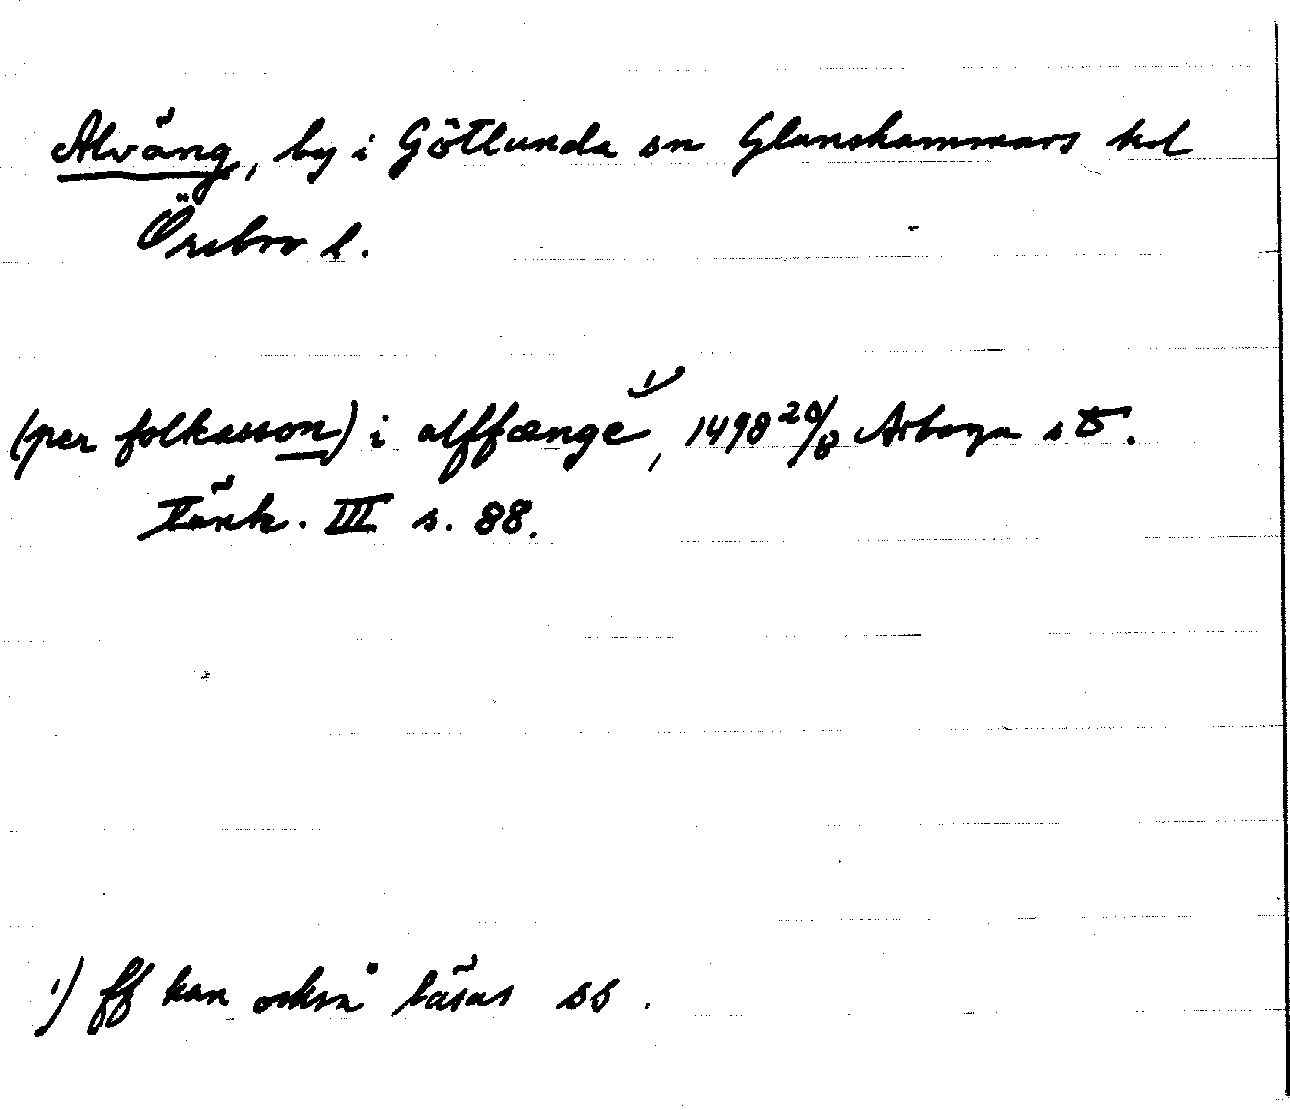 Alväng, by i Götlunda sn Glanshammars hd
Örebro l.
(per folkasson) i alffænge ¹), 1498 20/8 Arboga stb.
Tänk. III s. 88.
1) ff kan också läsas ss.